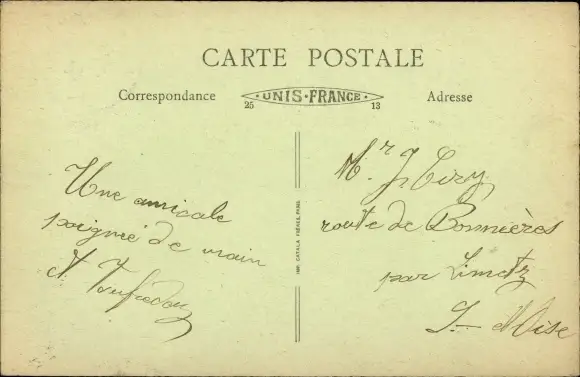 CARTE POSTALE
Correspondance
UNIS-FRANCE
25 13
Adresse
Une amicale
poignée de main
IMP. CATALA FRÈRES, PARIS
Mr J.
route de Bonnières
par Limetz
S. et Oise